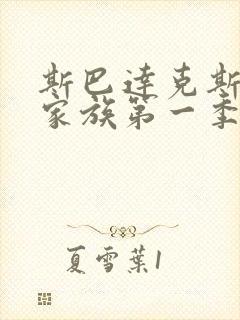 斯巴達克斯
家族第一季
夏雪葉1